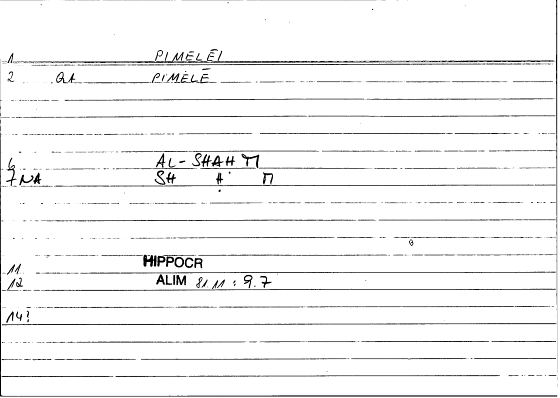 1 PIMELĒI
2 QA PIMELĒ
6 AL-SHAḤM
7 NA SH Ḥ M
11 HIPPOCR
12 ALIM 81,11 : 9.7
14?